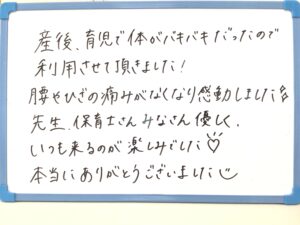 産後、育児で体がバキバキだったので
利用させて頂きました!
腰やひざの痛みがなくなり感動しました
先生、保育士さんみなさん優しく、
いつも来るのが楽しみでした♡
本当にありがとうございました